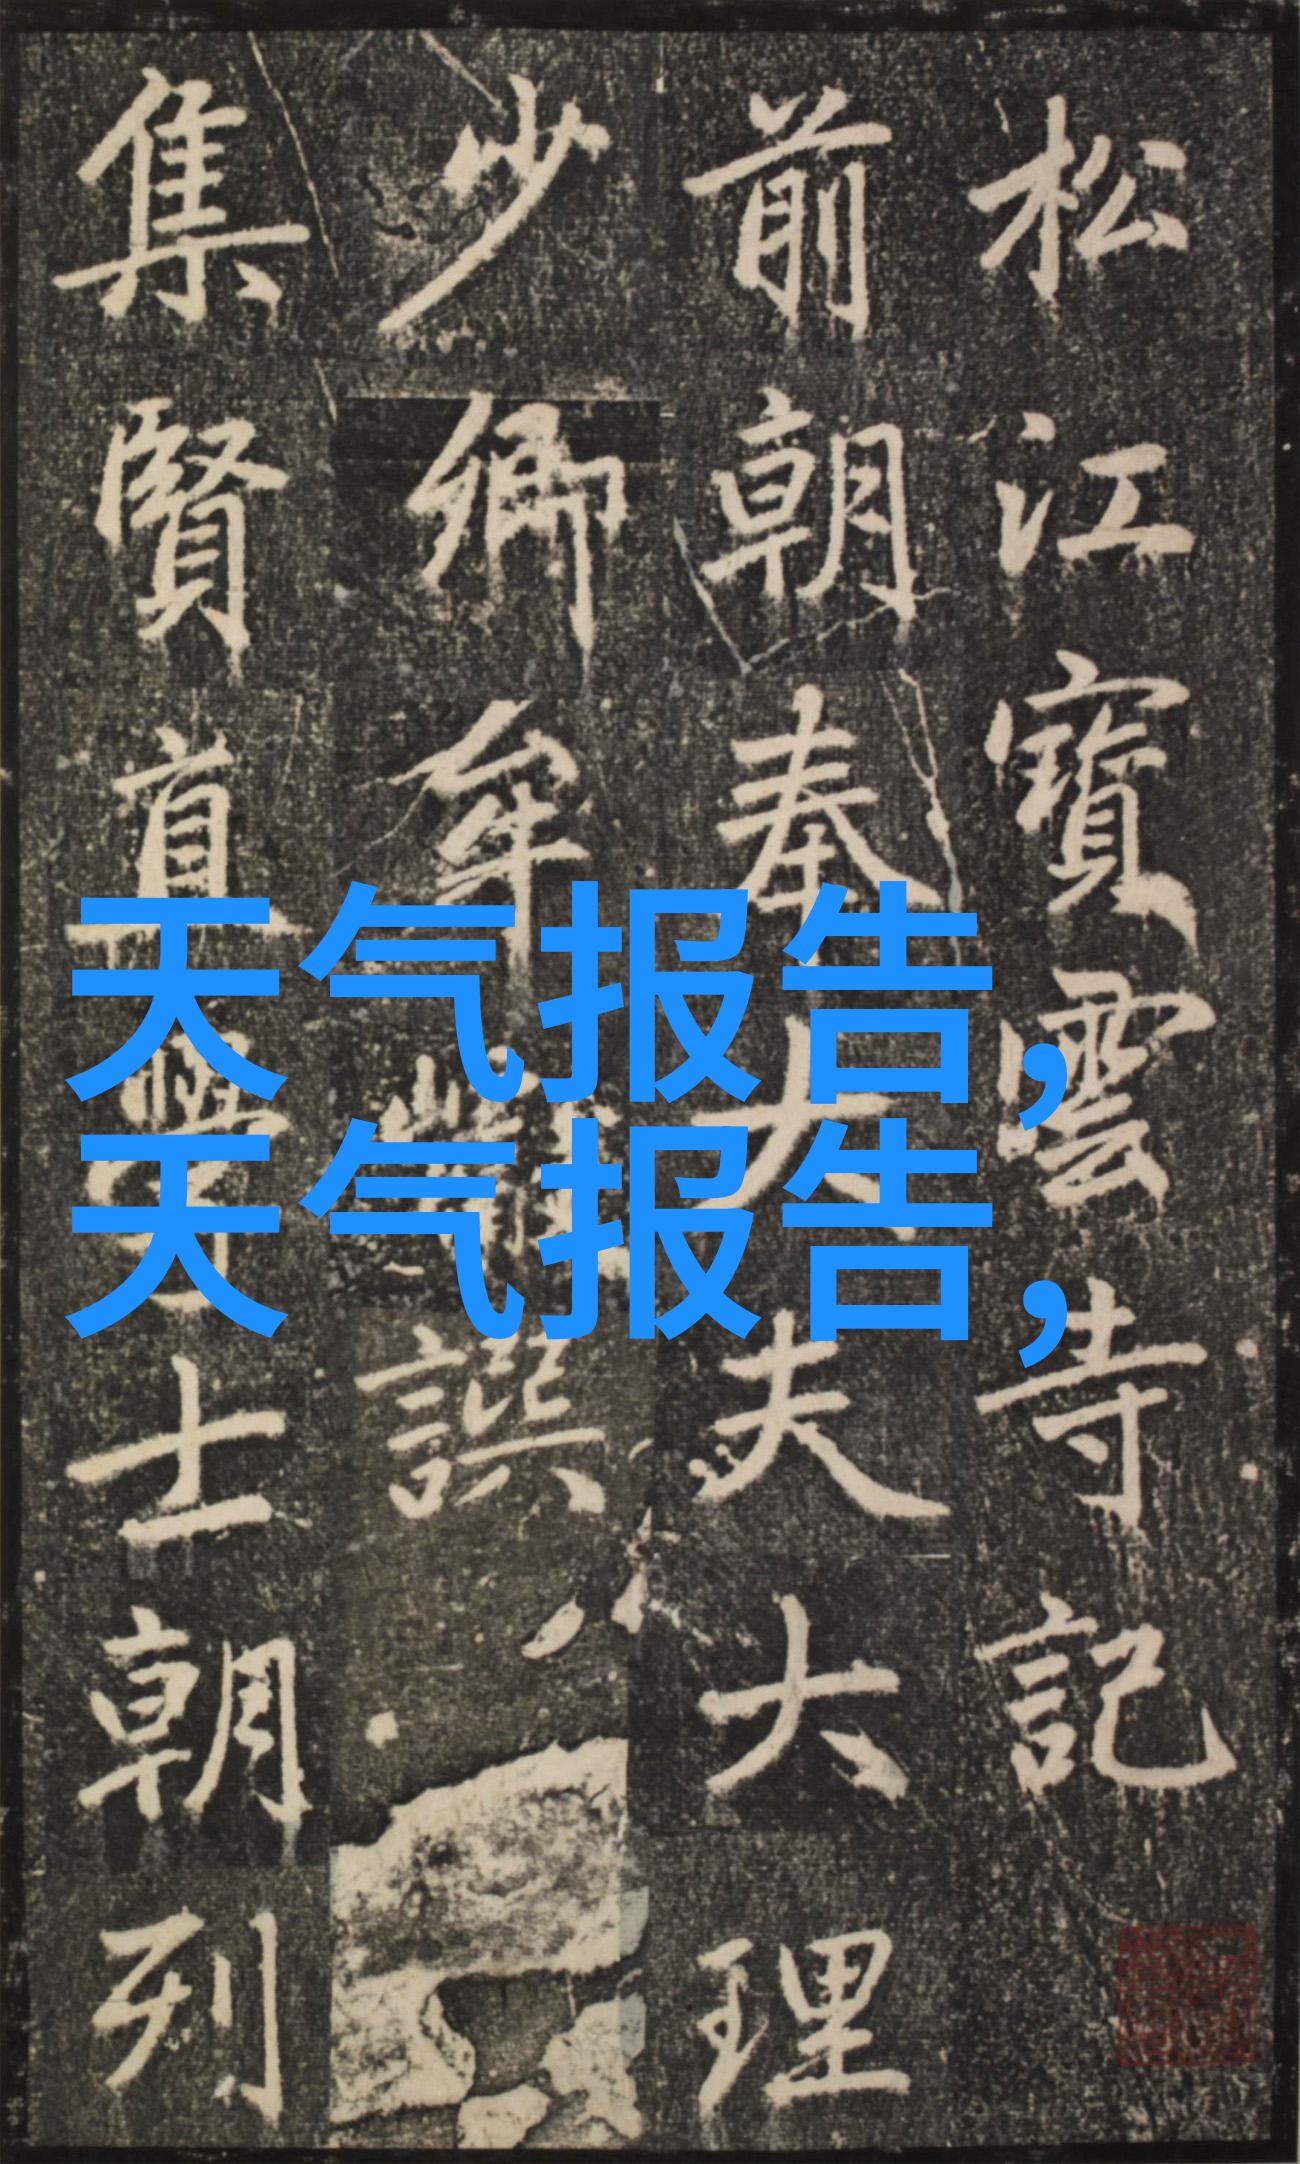 松江寶雲寺記
前朝奉大夫大理
少卿牟譔
集賢直學士朝列
天气报告,
天气报告,